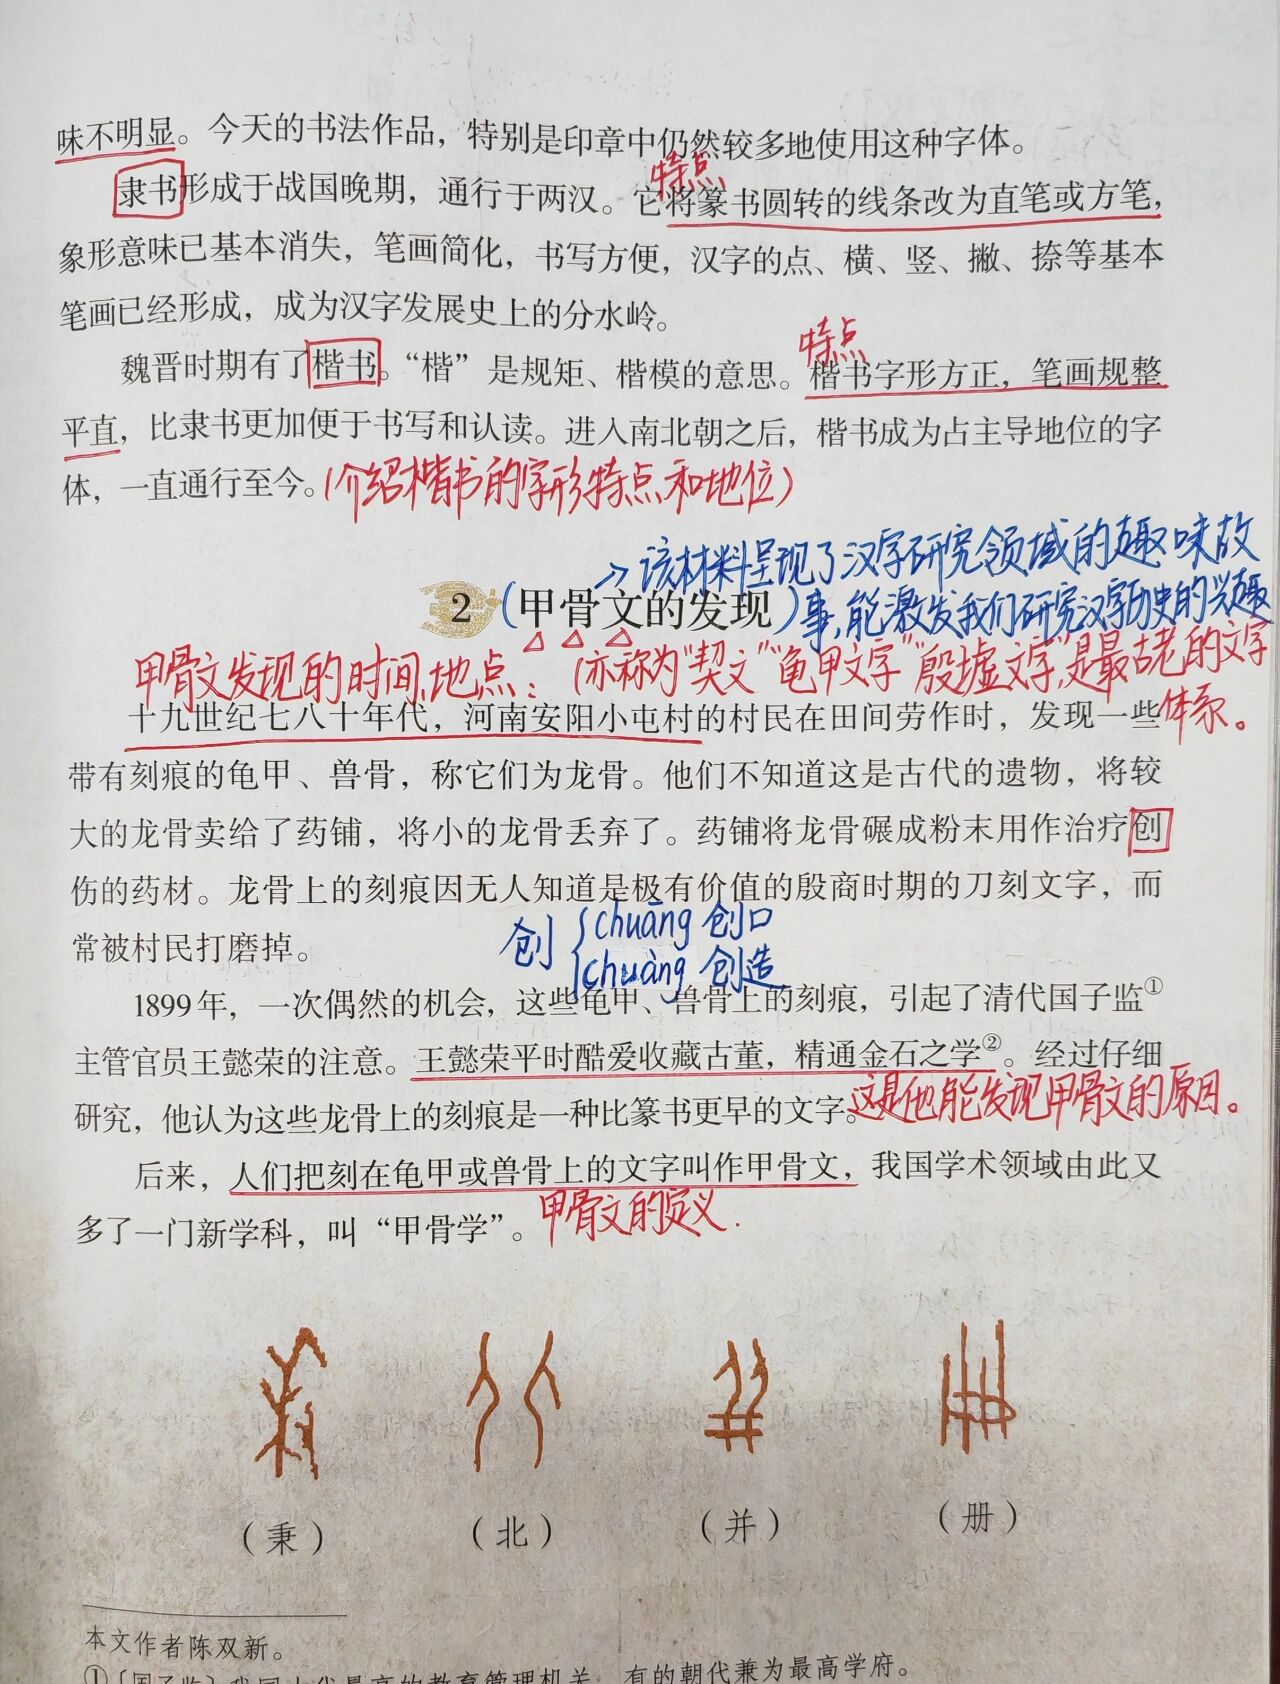 味不明显。今天的书法作品，特别是印章中仍然较多地使用这种字体。
特点
隶书形成于战国晚期，通行于两汉。它将篆书圆转的线条改为直笔或方笔，
象形意味已基本消失，笔画简化，书写方便，汉字的点、横、竖、撇、捺等基本
笔画已经形成，成为汉字发展史上的分水岭。
特点
魏晋时期有了楷书。“楷”是规矩、楷模的意思。楷书字形方正，笔画规整
平直，比隶书更加便于书写和认读。进入南北朝之后，楷书成为占主导地位的字
体，一直通行至今。(介绍楷书的字形特点和地位)
→该材料呈现了汉字研究领域的趣味故
事，能激发我们研究汉字历史的兴趣
2 (甲骨文的发现)
甲骨文发现的时间、地点： (亦称为“契文”“龟甲文字”“殷墟文字”，是最古老的文字
体系。
十九世纪七八十年代，河南安阳小屯村的村民在田间劳作时，发现一些
带有刻痕的龟甲、兽骨，称它们为龙骨。他们不知道这是古代的遗物，将较
大的龙骨卖给了药铺，将小的龙骨丢弃了。药铺将龙骨碾成粉末用作治疗创
伤的药材。龙骨上的刻痕因无人知道是极有价值的殷商时期的刀刻文字，而
常被村民打磨掉。
创 { chuāng 创口
chuàng 创造
1899年，一次偶然的机会，这些龟甲、兽骨上的刻痕，引起了清代国子监①
主管官员王懿荣的注意。王懿荣平时酷爱收藏古董，精通金石之学②。经过仔细
研究，他认为这些龙骨上的刻痕是一种比篆书更早的文字。这是他能发现甲骨文的原因。
后来，人们把刻在龟甲或兽骨上的文字叫作甲骨文，我国学术领域由此又
多了一门新学科，叫“甲骨学”。甲骨文的定义.
（秉） （北） （并） （册）
本文作者陈双新。
①〔国子监〕我国古代最高的教育管理机关，有的朝代兼为最高学府。